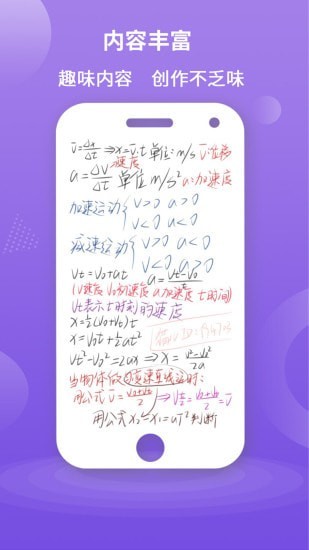 内容丰富
趣味内容 创作不乏味
v̄=Δx/Δt ⇒ x=v̄·t 单位:m/s v̄:位移
速度
a=Δv/Δt 单位 m/s² a:加速度
加速运动 { v>0 a>0
v<0 a<0
减速运动 { v>0 a<0
v<0 a>0
Vt=V0+at a=(Vt-V0)/t
(V速度 V0初速度 a加速度 t时间)
Vt表示t时刻的速度
x=½(V0+Vt)t
x=V0t+½at²
Vt²-V0²=2ax ⇒ x=
当物体做匀变速直线运动时:
用公式 v̄=(V0+Vt)/2 ⇒ V t/2=(V0+Vt)/2=v̄
用公式 x2-x1=aT²判断